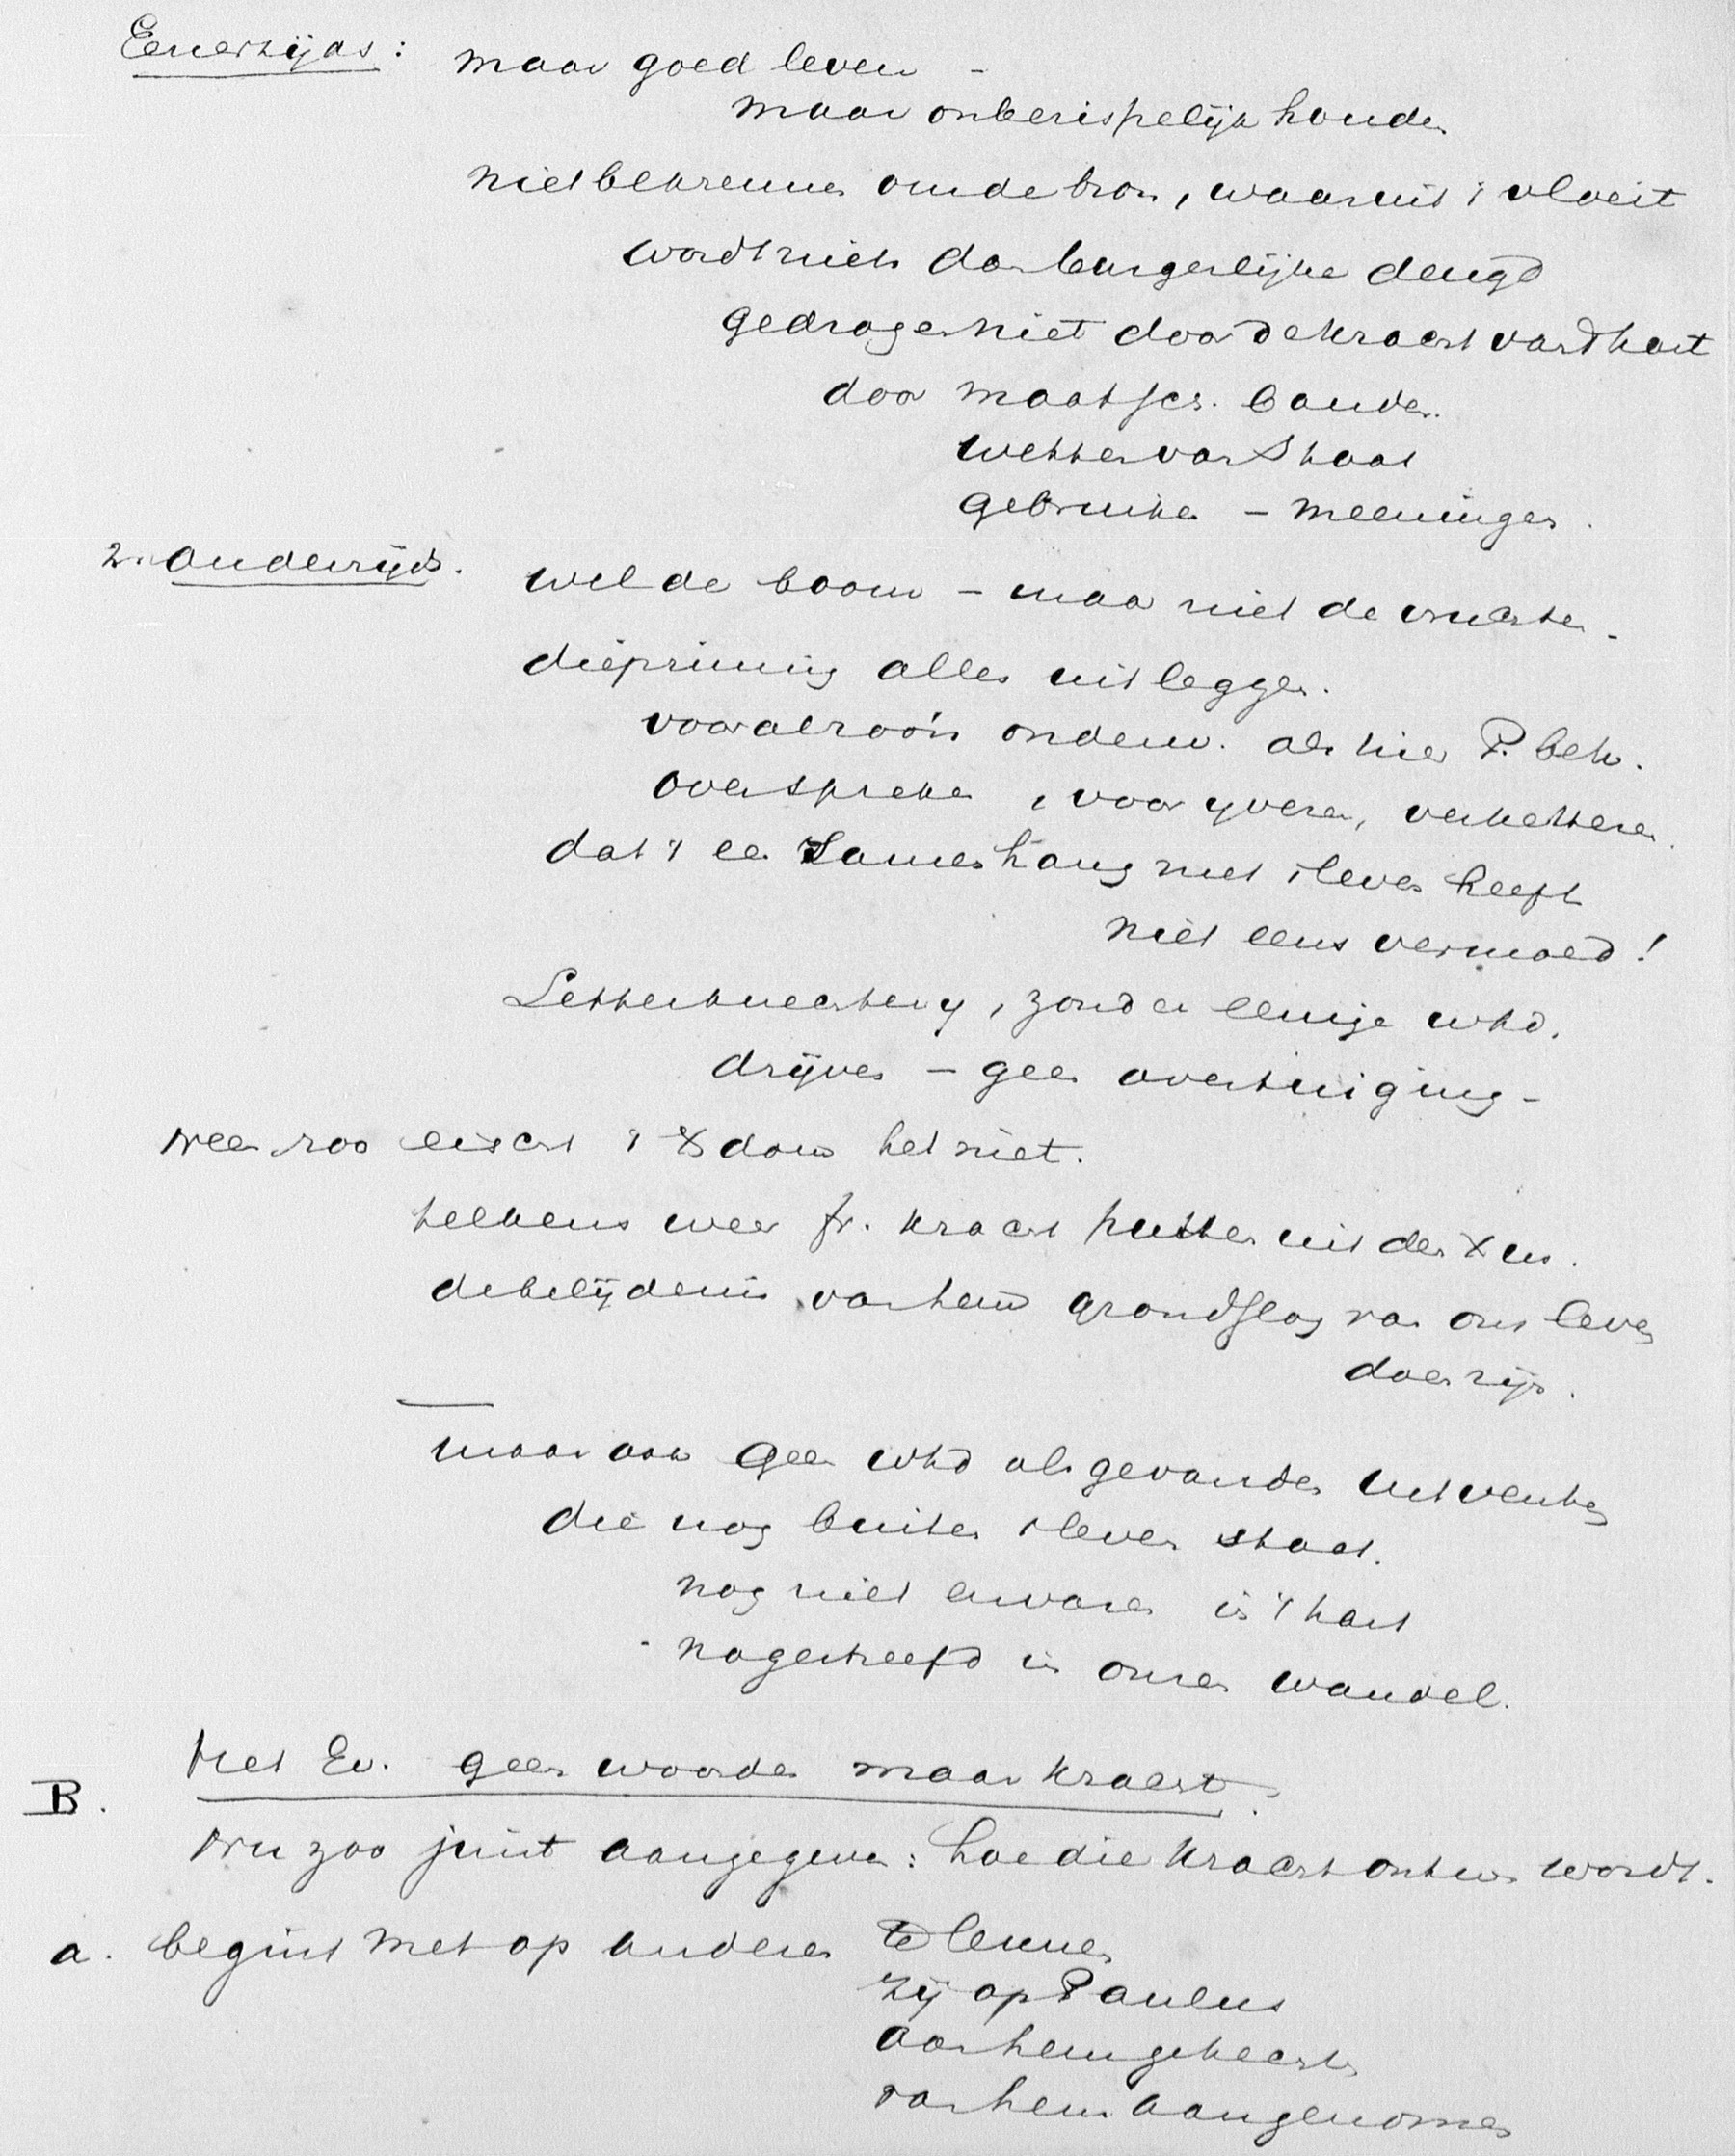 Eenerzijds: maar goed leven -
maar onberispelijk houden
niet bekreunen om de bron, waaruit 't vloeit
wordt niets dan burgerlijke deugd
gedragen niet door de kracht van 't hart
door maatsch. banden.
wetten van Staat
gebruiken - meeningen.
2. anderzijds. wel de boom - maar niet de vruchten -
diepzinnig alles uitleggen.
vooral zoo'n onderw. als hier P. beh.
over spreken, voor yveren, verketteren.
dat 't een Samenhang met 't leven heeft
niet eens vermoed!
Letterknechtery, zonder eenige whd.
drijven - geen overtuiging -
Neen zoo eischt 't Xdom het niet.
telkens weer fr. kracht putten uit den Xus.
de belijdenis van hem grondslag van ons leven
doen zijn.
maar ook geen whd als gevonden uitventen
die nog buiten 't leven staat.
nog niet ervaren is 't hart
nagestreefd in onzen wandel.
B. Het Ev. geen woorden maar kracht.
Nu zoo juist aangegeven: hoe die kracht ontw. wordt.
a. begint met op anderen te leunen
zij op Paulus
aan hem gehecht
van hem aangenomen